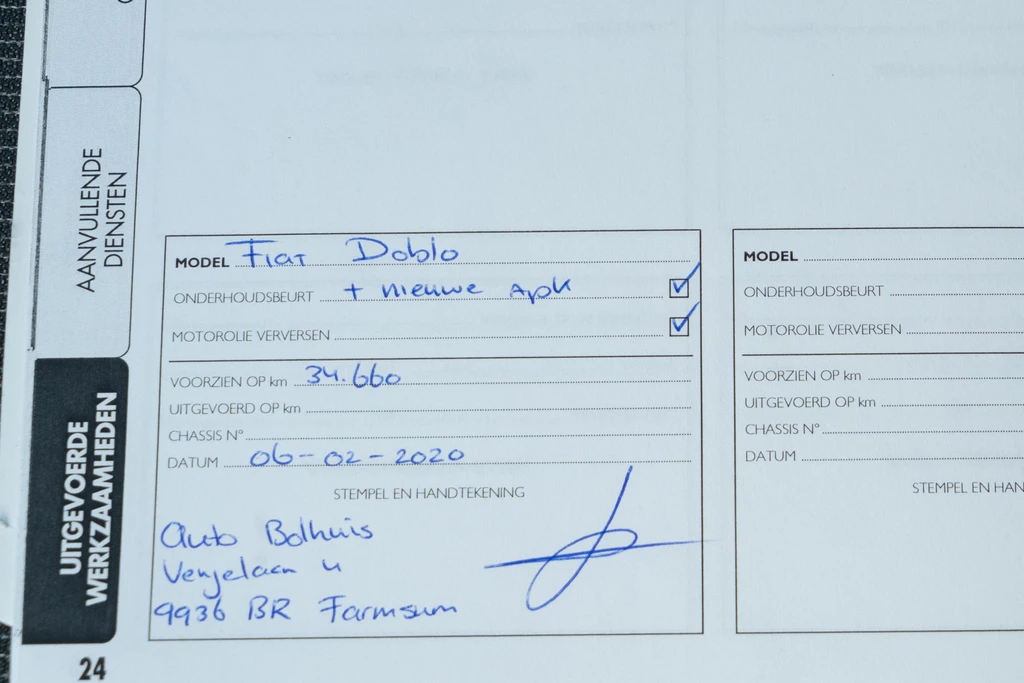 AANVULLENDE
DIENSTEN
UITGEVOERDE
WERKZAAMHEDEN
24
MODEL Fiat Doblo
ONDERHOUDSBEURT + nieuwe Apk
MOTOROLIE VERVERSEN
VOORZIEN OP km 34.660
UITGEVOERD OP km
CHASSIS N°
DATUM 06-02-2020
STEMPEL EN HANDTEKENING
Auto Bolhuis
4
9936 BR Farmsum
MODEL
ONDERHOUDSBEURT
MOTOROLIE VERVERSEN
VOORZIEN OP km
UITGEVOERD OP km
CHASSIS N°
DATUM
STEMPEL EN HAN